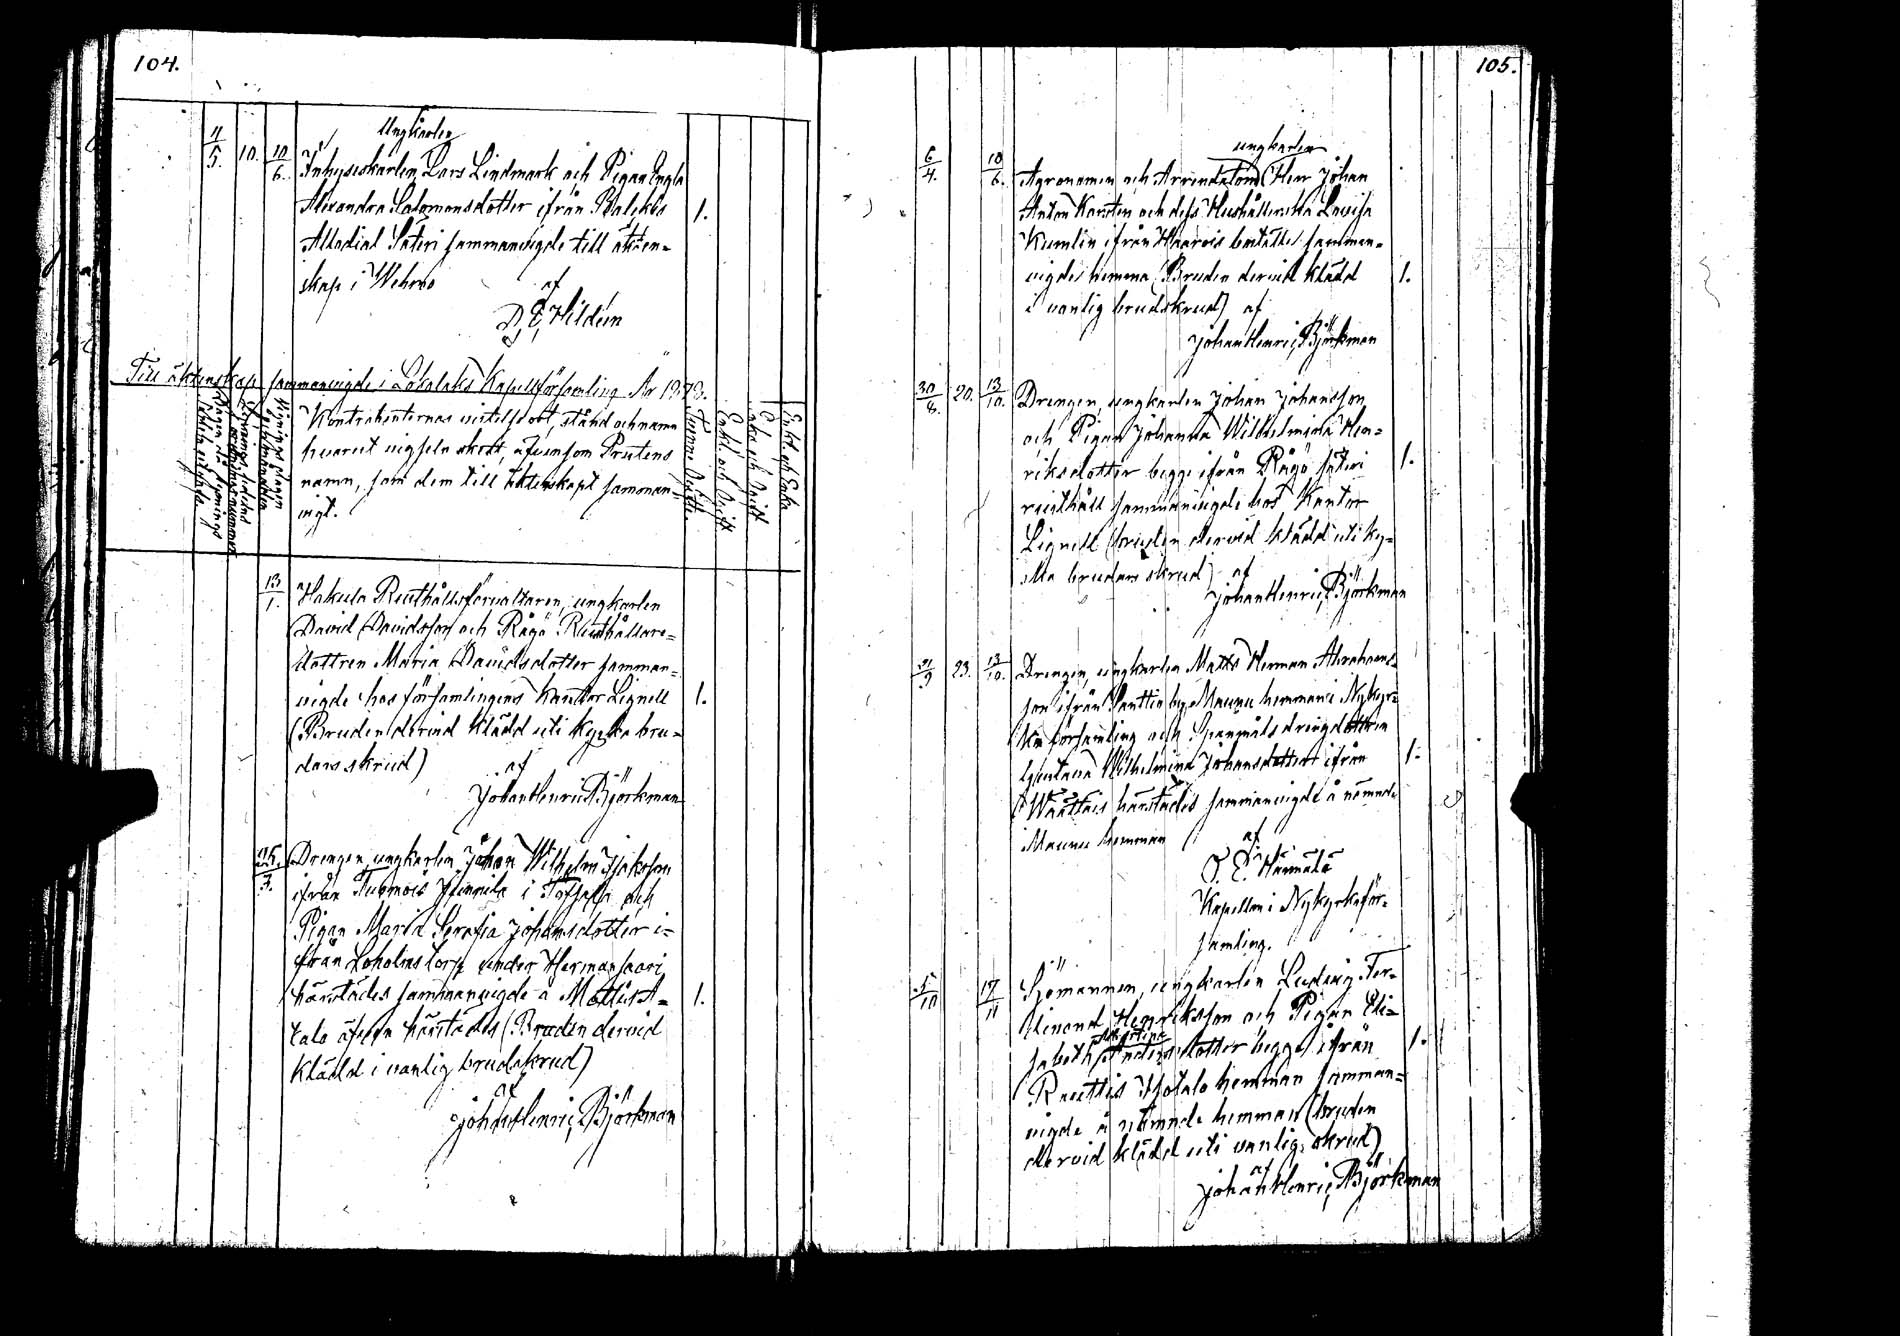 104.
Ungkarlen
11/5. 10. 10/6. Inhyseskarlen Lars Lindmark och Pigan Engla
Alexandra Salomonsdotter ifrån Palekis 1.
Allodial Säteri sammanvigde till äkten-
skap i Wehmo af
D. E. Hildén
Till äktenskap sammanvigde i Lokalaks Kapellförsamling År 1878.
Kontrahenternas vistelseort, stånd och namn
hvarest vigseln skett, äfvensom Prestens
namn, som dem till äktenskapet samman-
vigt.
Enkl. och Enka
13/1. Hakula Rusthållsförvaltaren, ungkarlen
David Davidsson och Rågö Rusthållare-
dottren Maria Davidsdotter samman-
vigde hos församlingens Kantor Lignell 1.
(Bruden dervid klädd uti kyrko bru-
dars skrud) af
Johan Henric Björkman
Drengen, ungkarlen Johan Wilhelm Isaksson
ifrån i och
Pigan Maria Serafia Johansdotter i-
från Loholms torp under Hermansaari
härstädes sammanvigde å 1.
talo äfven härstädes (Bruden dervid
klädd i vanlig brudskrud)
af
Johan Henric Björkman
105.
ungkarlen
6/4. 10/6. Agronomen och Arrendatorn Herr Johan
Anton Karsten och dess Hushållerska Lovisa
Kumlin ifrån samman-
vigde hemma (Bruden dervid klädd 1.
i vanlig brudskrud) af
Johan Henric Björkman
30/8. 20. 13/10. Drengen, ungkarlen Johan Johansson
och Pigan Johanna Wilhelmina Hen-
riksdotter begge ifrån Rågö Säteri 1.
rusthåll sammanvigde hos Kantor
Lignell (bruden dervid klädd uti ky-
rko brudars skrud) af
Johan Henric Björkman
23. 13/10. Drengen, ungkarlen Matts Herman Abrahams-
son ifrån by Maunu hemman i Nykyr-
ko församling och Spanmålsdrengdottren
Gustava Wilhelmina Johansdotter ifrån 1.
härstädes sammanvigde å nämnde
Maunu hemman af
Kapellan i Nykyrkoför-
samling.
5/10 17/11 Sjömannen, ungkarlen Ludvig Fer-
dinand Henriksson och Pigan Eli-
sabeth Andersdotter begge ifrån 1.
hemman samman-
vigde å nämnde hemman (bruden
dervid klädd uti vanlig skrud)
af
Johan Henric Björkman